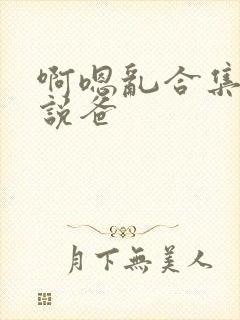 啊嗯亂合集
說爸
月下無美人